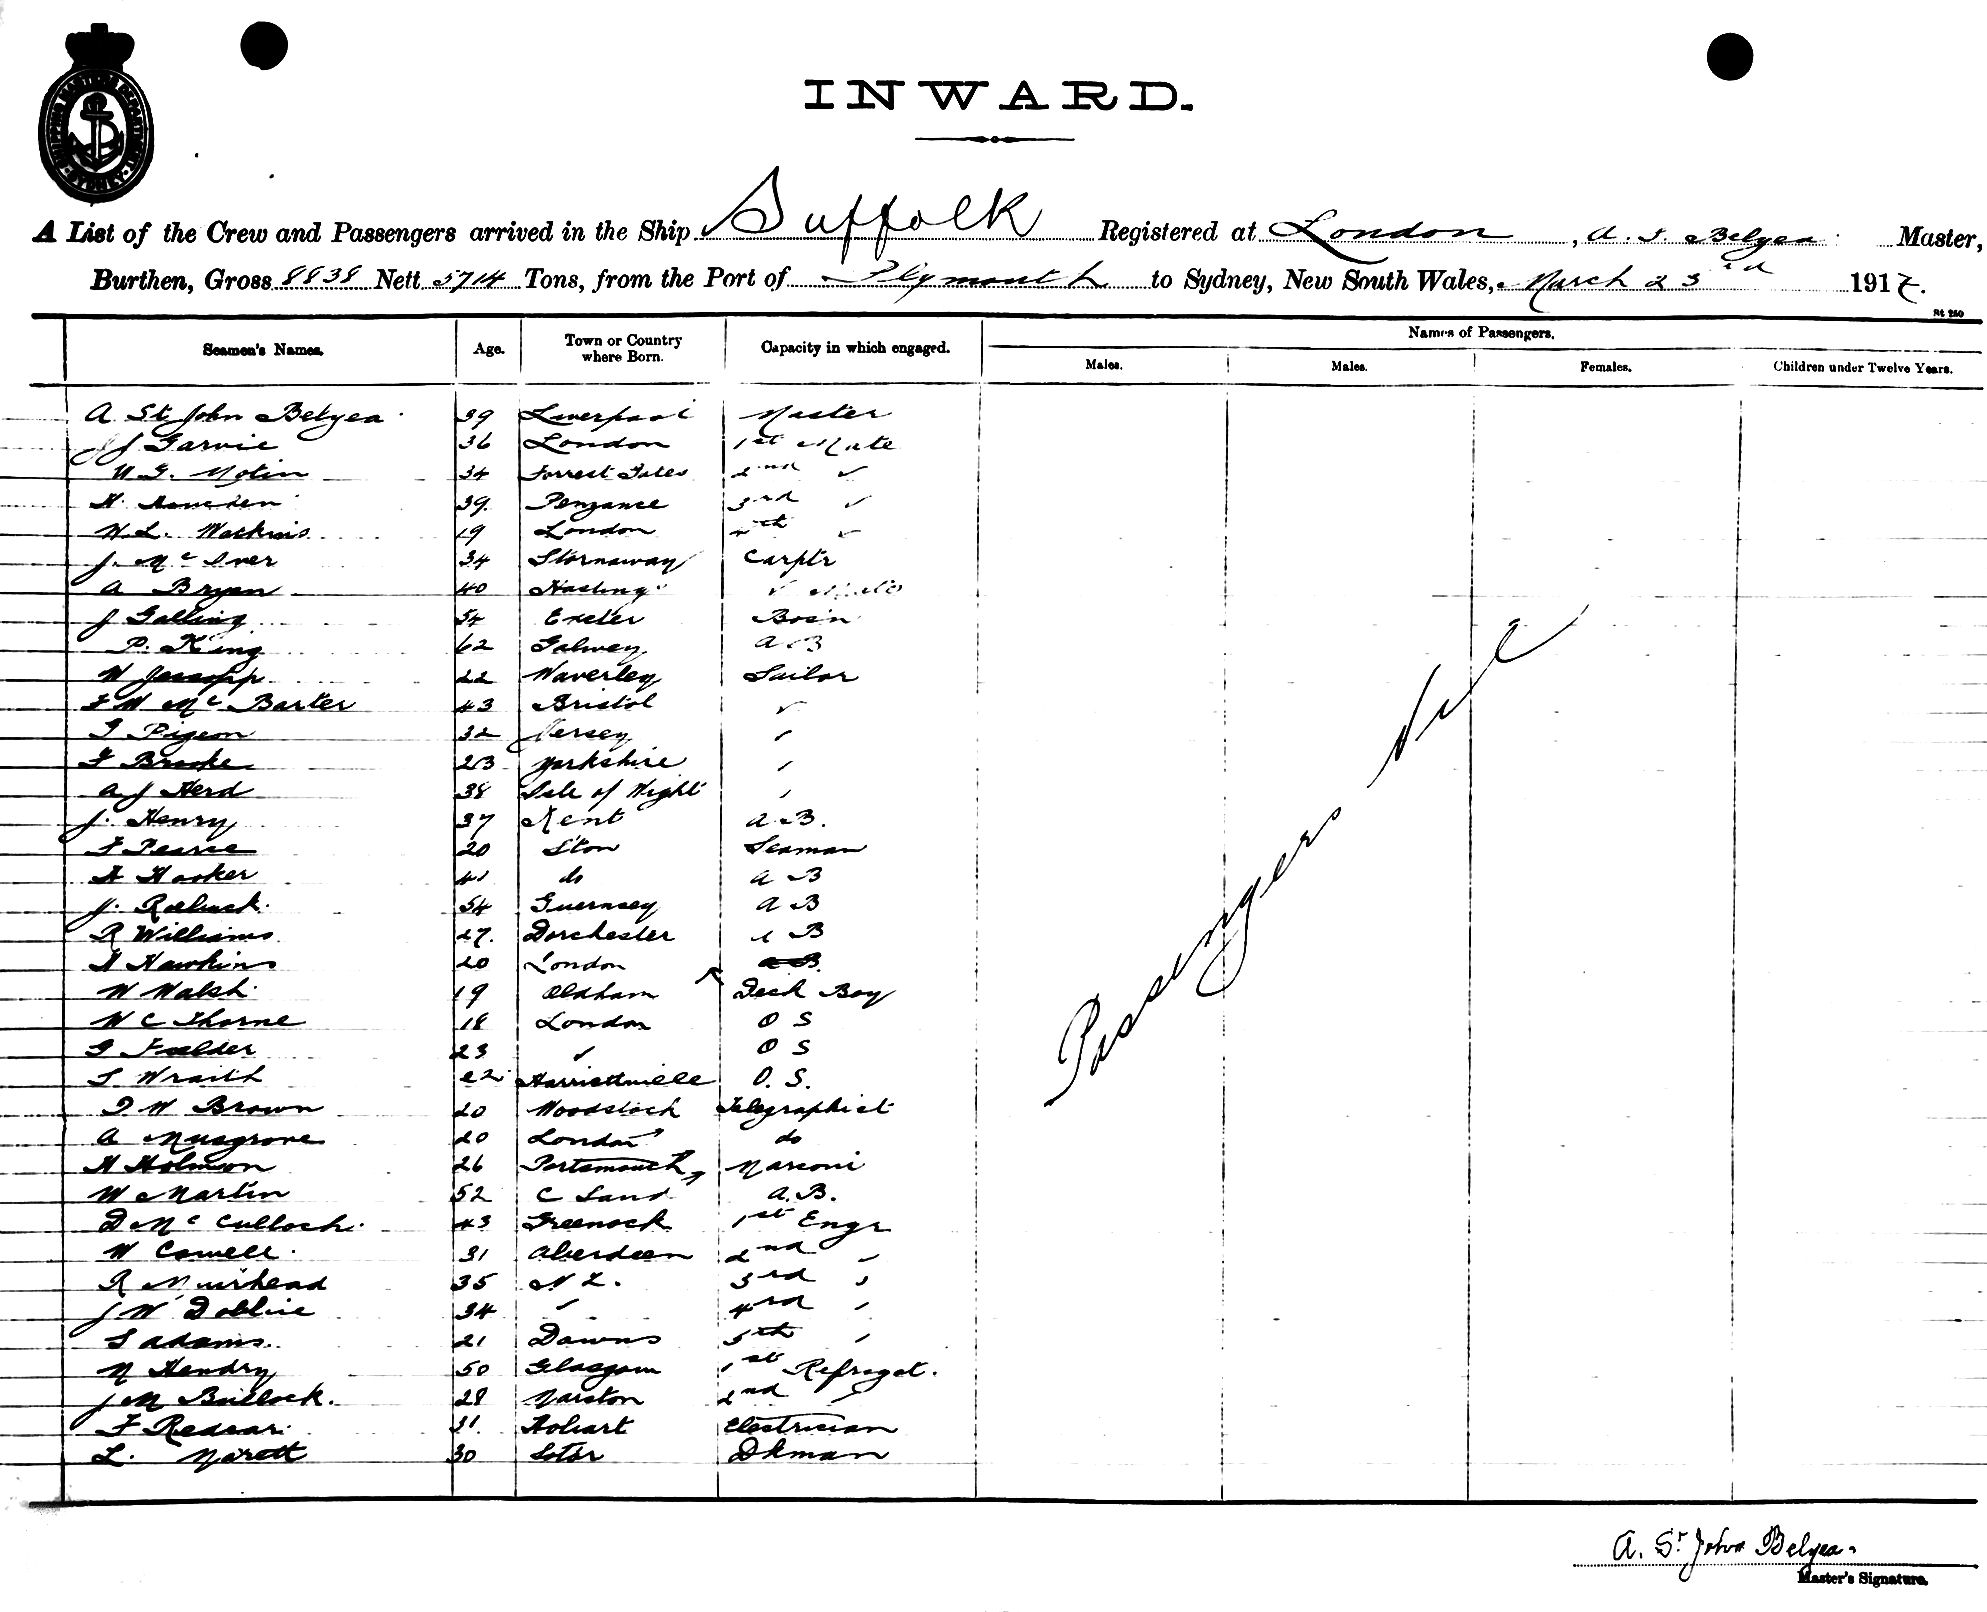 SHIPPING MASTER'S DEPARTMENT SYDNEY
INWARD.
A List of the Crew and Passengers arrived in the Ship Suffolk Registered at London, A. S Belyea Master,
Burthen, Gross 8838 Nett 5714 Tons, from the Port of Plymouth to Sydney, New South Wales, March 23rd 1917.
St 250
Seamen's Names. Age. Town or Country where Born. Capacity in which engaged. Names of Passengers.
Males. Males. Females. Children under Twelve Years.
A St John Belyea 39 Liverpool Master
J J Garvie 36 London 1st Mate
34 Forrest Gates 2nd ✓
H. 39 Penzance 3rd ✓
W. L. Watkins 19 London 4th ✓
J. Mc Iver 34 Stornaway Carptr
A Bryen 40 Hastings ✓
J Galling 54 Exeter Bosn
P. King 62 Galway A B
W Jessopp 22 Waverley Sailor
F W Mc Barter 43 Bristol ✓
G Pigeon 32 Jersey ✓
F Brooke 23 Yorkshire ✓
A J Herd 38 Isle of Wight ✓
J. Henry 37 Kent A B.
F Pearce 20 S'ton Seaman
H Hooker 41 do A B
J. Roebuck 54 Guernsey A B
R Williams 27. Dorchester A B
H Hawkins 20 London A B.
W Walsh 19 Oldham Deck Boy
W C Thorne 18 London O S
G Fielder 23 ✓ O S
S Wraith 22 Harrietville O. S.
D W Brown 20 Woodstock Telegraphist
A Musgrove 20 London do
H Holman 26 Portsmouth Marconi
W Martin 52 C Land A. B.
D Mc Culloch 43 Greenock 1st Engr
W Cowell 31 Aberdeen 2nd "
R Muirhead 35 N Z. 3rd "
J W Dobbie 34 " 4th "
S Adams 21 Downs 5th "
N Hendry 50 Glasgow 1st Refrigt.
J M Bullock. 28 Marston 2nd "
F Redcar 31 Hobart Electrician
L. Marett 30 Dkman
Passengers Nil
A. St John Belyea.
Master's Signature.